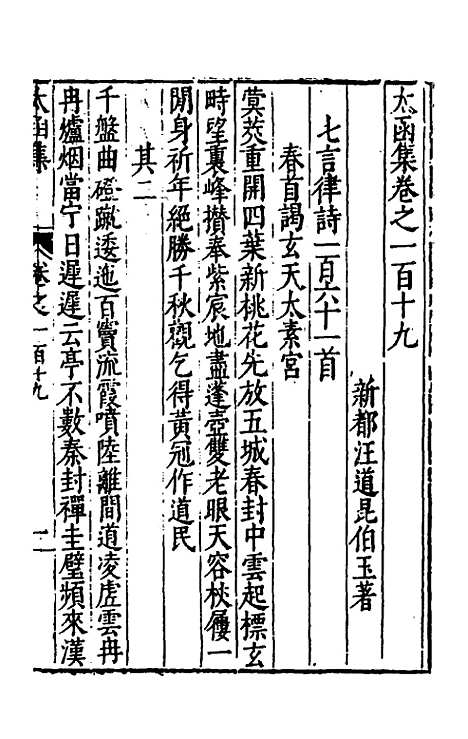 太函集卷之一百十九
新都汪道昆伯玉著
七言律詩一百六十一首
春首謁玄天太素宮
蓂莢重開四葉新桃花先放五城春封中雲起標玄
時望裏峰攢奉紫宸地盡蓬壺雙老眼天容杖屨一
閒身祈年絕勝千秋觀乞得黃冠作道民
其二
千盤曲磴蹴逶迤百竇流霞噴陸離間道凌虗雲冉
冉爐烟當宁日遲遲云亭不數秦封禪圭璧頻來漢
太函集
卷之一百十九
一